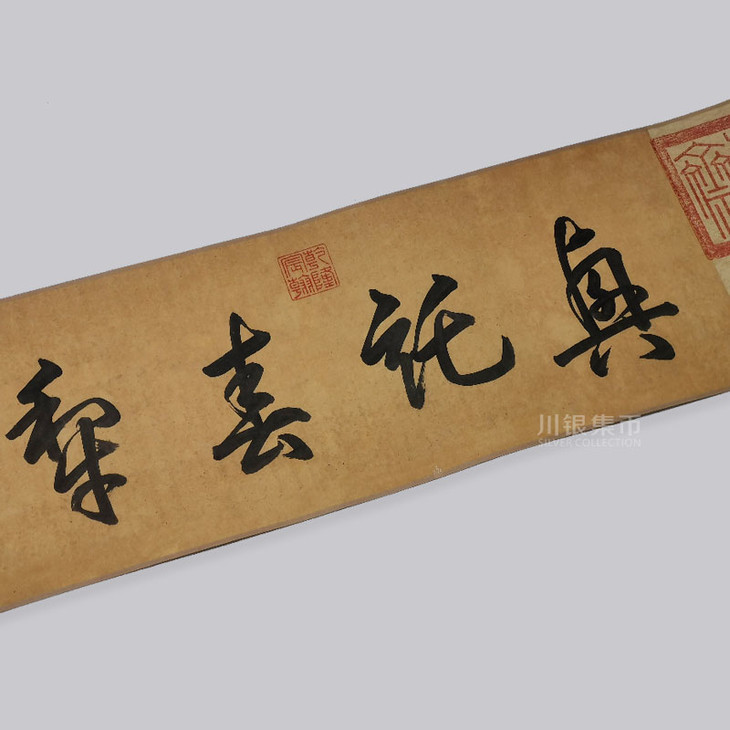 興託春犁
乾隆宸翰
川银集币
SILVER COLLECTION